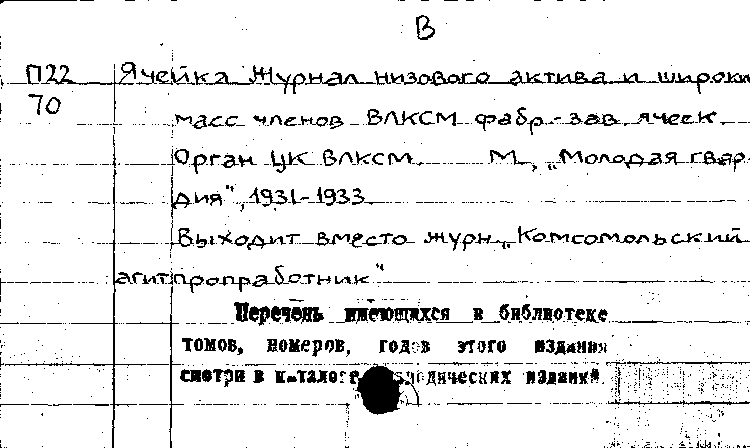 В
П22 Ячейка Журнал низового актива и широки
70 масс членов ВЛКСМ фабр.-зав. ячеек.
Орган ЦК ВЛКСМ. М., „Молодая гвар-
дия", 1931-1933.
Выходит вместо журн. „Комсомольский
агитпропработник"
Перечень имеющихся в библиотеке
томов, номеров, годов этого издания
смотри в каталоге периодических изданий.